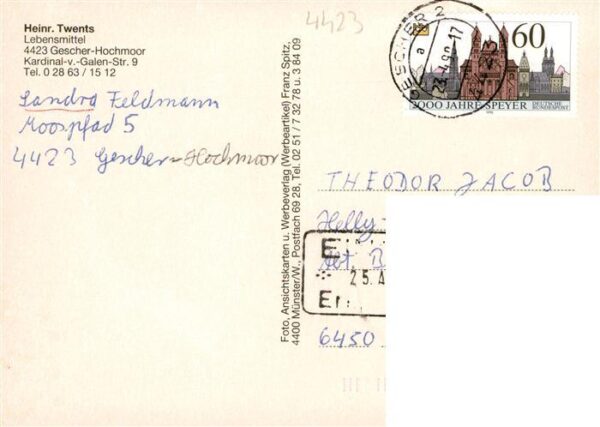 Heinr. Twents
Lebensmittel
4423 Gescher-Hochmoor
Kardinal-v.-Galen-Str. 9
Tel. 0 28 63 / 15 12
Sandra Feldmann
Moorpfad 5
4423 Gescher-Hochmoor
4423
GESCHER 2
a
23.4.90-17
4423
60
2000 JAHRE SPEYER
DEUTSCHE
BUNDESPOST
Foto, Ansichtskarten u. Werbeverlag (Werbeartikel) Franz Spitz,
4400 Münster/W., Postfach 69 28, Tel. 02 51 / 7 32 78 u. 3 84 09
THEODOR JACOB
Helly-
25.4
6450